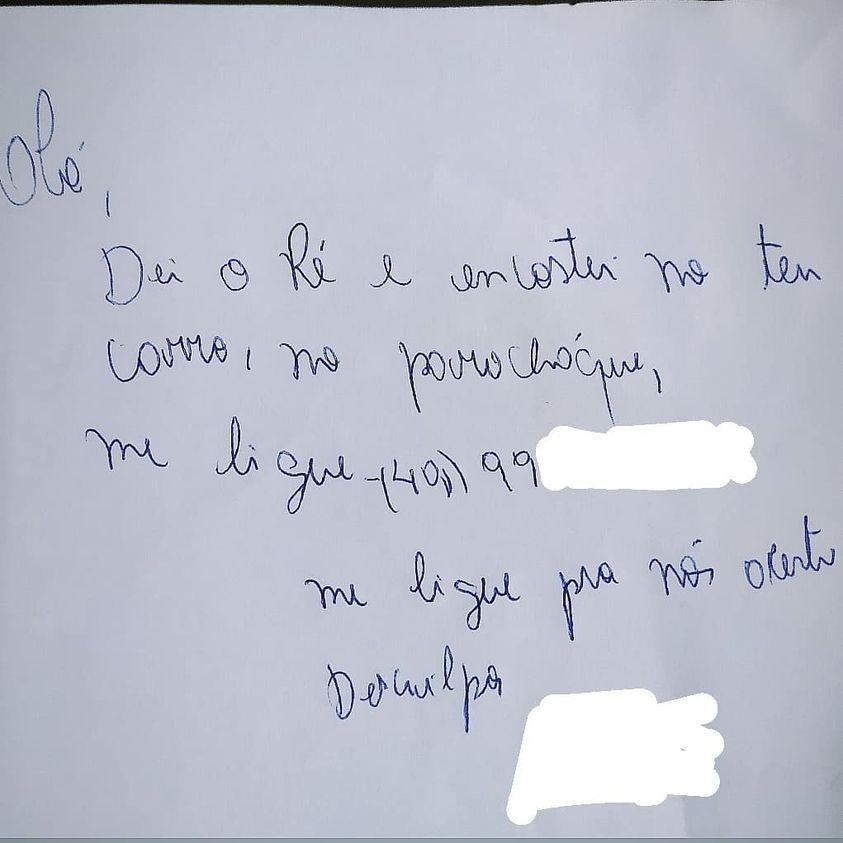 Olá,
Dei a Ré e encostei no teu
carro, no parachóque,
me ligue (49) 99
me ligue pra nós acerta
Desculpa